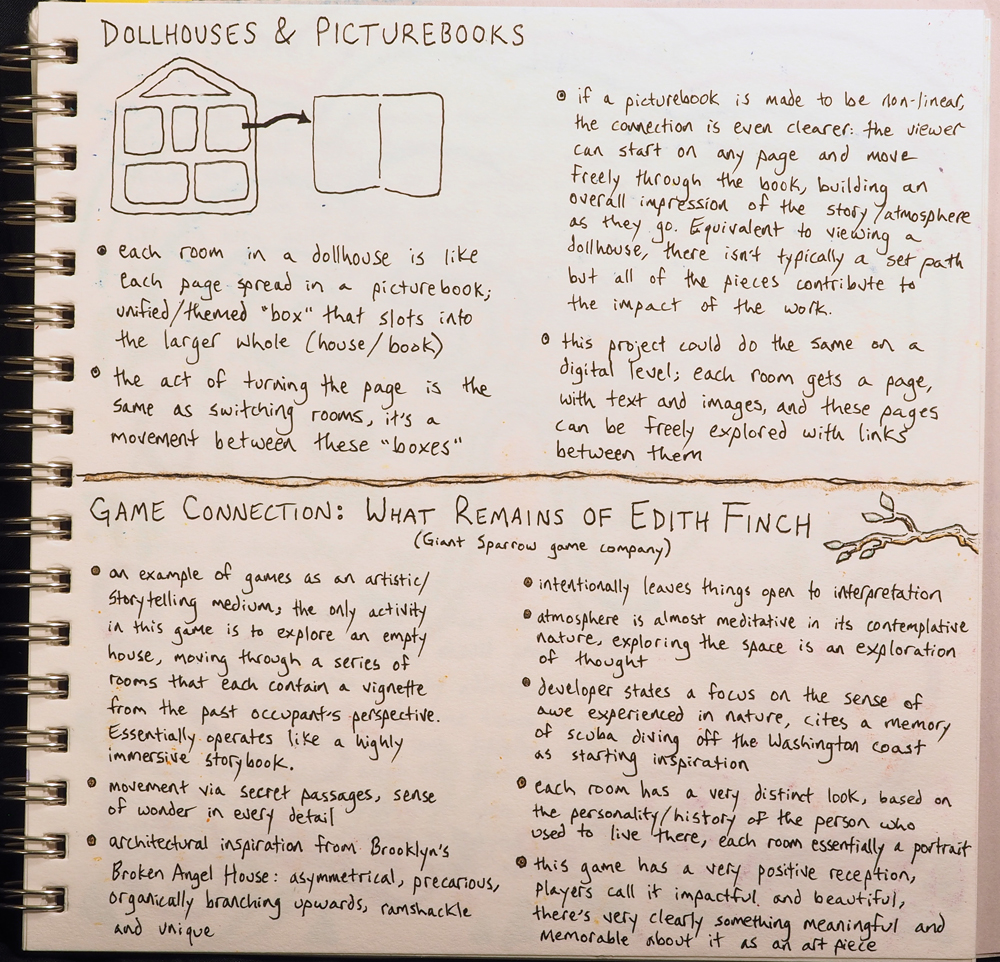 DOLLHOUSES & PICTUREBOOKS
• each room in a dollhouse is like
each page spread in a picturebook;
unified/themed "box" that slots into
the larger whole (house/book)
• the act of turning the page is the
same as switching rooms, it's a
movement between these "boxes"
• if a picturebook is made to be non-linear,
the connection is even clearer: the viewer
can start on any page and move
freely through the book, building an
overall impression of the story/atmosphere
as they go. Equivalent to viewing a
dollhouse, there isn't typically a set path
but all of the pieces contribute to
the impact of the work.
• this project could do the same on a
digital level; each room gets a page,
with text and images, and these pages
can be freely explored with links
between them
GAME CONNECTION: WHAT REMAINS OF EDITH FINCH
(Giant Sparrow game company)
• an example of games as an artistic/
storytelling medium; the only activity
in this game is to explore an empty
house, moving through a series of
rooms that each contain a vignette
from the past occupant's perspective.
Essentially operates like a highly
immersive storybook.
• movement via secret passages, sense
of wonder in every detail
• architectural inspiration from Brooklyn's
Broken Angel House: asymmetrical, precarious,
organically branching upwards, ramshackle
and unique
• intentionally leaves things open to interpretation
• atmosphere is almost meditative in its contemplative
nature, exploring the space is an exploration
of thought
• developer states a focus on the sense of
awe experienced in nature, cites a memory
of scuba diving off the Washington coast
as starting inspiration
• each room has a very distinct look, based on
the personality/history of the person who
used to live there, each room essentially a portrait
• this game has a very positive reception,
players call it impactful and beautiful,
there's very clearly something meaningful and
memorable about it as an art piece